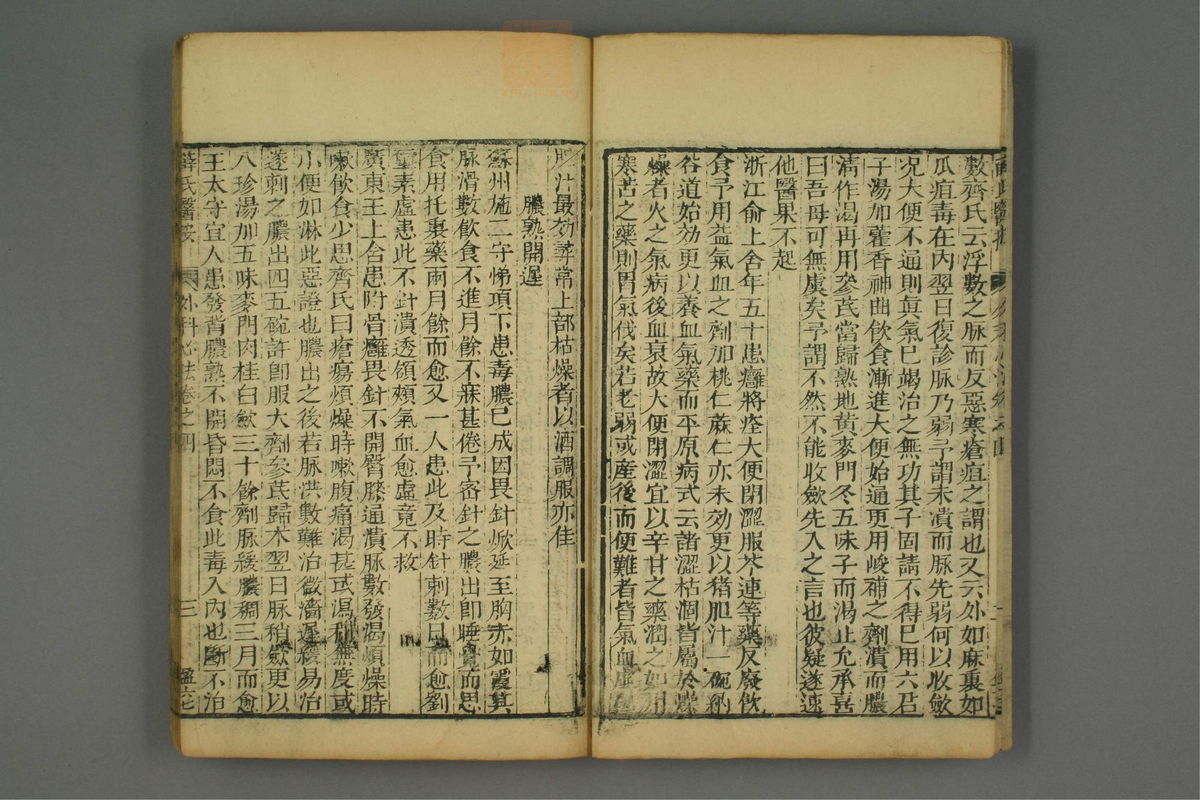 數齊氏云浮數之脉而反惡寒瘡疽之謂也又云外如麻裏如
瓜疽毒在內翌日復診脉乃弱予謂未潰而脉先弱何以收斂
况大便不通則眞氣已竭治之無功其子固請不得已用六君
子湯加藿香神曲飲食漸進大便始通更用峻補之劑潰而膿
淸作渴再用參芪當歸熟地黃麥門冬五味子而渴止允承喜
曰吾母可無虞矣予謂不然不能收斂先入之言也彼疑遂速
他醫果不起
浙江俞上舍年五十患癰將痊大便閉澀服芩連等藥反廢飲
食予用益氣血之劑加桃仁蔴仁亦未効更以猪胆汁一碗納
谷道始効更以養血氣藥而平原病式云諸澀枯涸皆屬於燥
燥者火之氣病後血衰故大便閉澀宜以辛甘之藥潤之如用
寒苦之藥則胃氣伐矣若老弱或産後而便難者皆氣血虛
胆汁最効蓴常上部枯燥者以酒調服亦佳
膿熟開遲
蘇州施二守悌項下患毒膿已成因畏針焮延至胸赤如霞其
脉滑數飲食不進月餘不寐甚倦予密針之膿出即睡覺而思
食用托裏藥兩月餘而愈又一人患此及時針刺數日而愈劉
玺素虛患此不針潰透頷頰氣血愈虛竟不救
廣東王上舍患附骨癰畏針不開臂膝通潰脉數發渴煩燥時
嗽飲食少思齊氏曰瘡瘍煩燥時嗽腹痛渴甚或瀉利無度或
小便如淋此惡證也膿出之後若脉洪數難治微濇遲緩易治
遂刺之膿出四五碗許即服大劑參芪歸朮翌日脉稍斂更以
八珍湯加五味麥門肉桂白斂三十餘劑脉緩膿稠三月而愈
王太守宜人患發背膿熟不開昏悶不食此毒入內也斷不治
薛氏醫案 外科心法卷之四 三